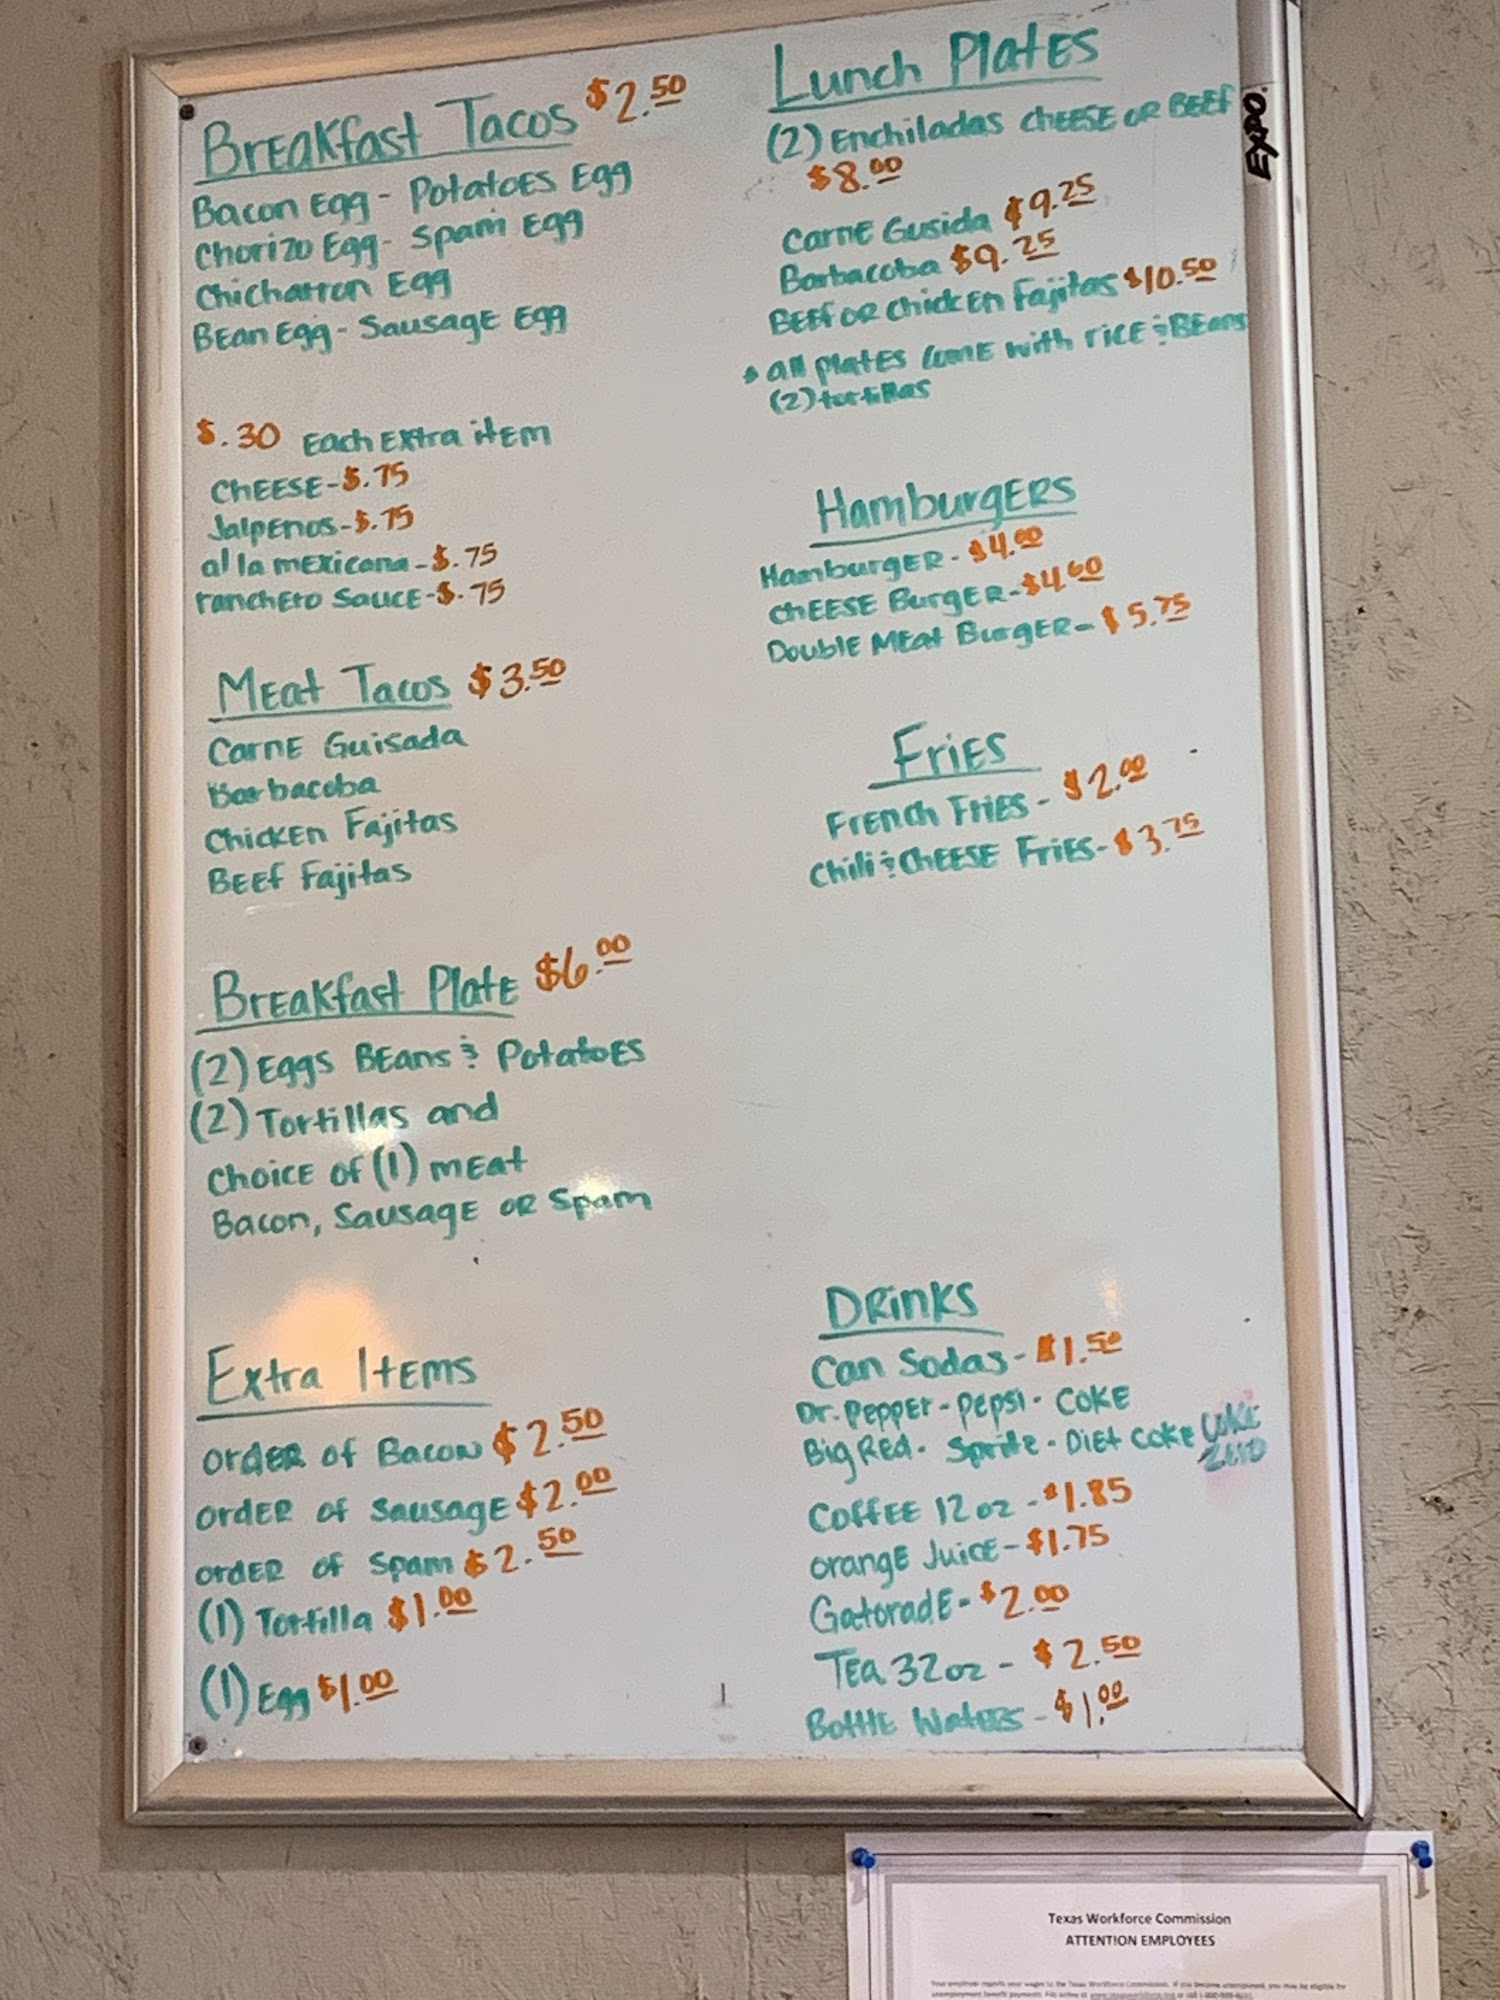 Breakfast Tacos $2.50
Bacon Egg - Potatoes Egg
Chorizo Egg - Spam Egg
Chicharron Egg
Bean Egg - Sausage Egg
$.30 Each Extra item
Cheese - $.75
Jalpenos - $.75
al la mexicana - $.75
ranchero Sauce - $.75
Meat Tacos $3.50
Carne Guisada
Barbacoba
Chicken Fajitas
Beef Fajitas
Breakfast Plate $6.00
(2) Eggs Beans & Potatoes
(2) Tortillas and
choice of (1) meat
Bacon, Sausage or Spam
Extra Items
order of Bacon $2.50
order of Sausage $2.00
order of Spam $2.50
(1) Tortilla $1.00
(1) Egg $1.00
Lunch Plates
(2) Enchiladas cheese or Beef
$8.00
Carne Gusida $9.25
Barbacoba $9.25
Beef or Chicken Fajitas $10.50
all plates come with rice & Beans
(2) tortillas
Hamburgers
Hamburger - $4.00
Cheese Burger - $4.60
Double Meat Burger - $5.75
Fries
French Fries - $2.00
Chili & Cheese Fries - $3.75
Drinks
Can Sodas - $1.50
Dr. Pepper - Pepsi - Coke
Big Red - Sprite - Diet Coke Coke
Zero
Coffee 12 oz - $1.85
Orange Juice - $1.75
Gatorade - $2.00
Tea 32 oz - $2.50
Bottle Waters - $1.00
EXPO
Texas Workforce Commission
ATTENTION EMPLOYEES